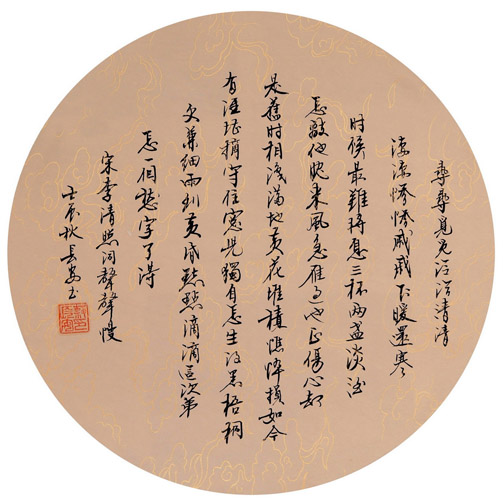 尋尋覓覓冷冷清清
凄凄慘慘戚戚乍暖還寒
时候最難將息三杯兩盞淡酒
怎敵他晚來風急雁過也正傷心却
是舊时相識滿地黄花堆積憔悴損如今
有誰堪摘守住窗兒獨自怎生得黑梧桐
又兼細雨到黄昏點點滴滴這次第
怎一個愁字了得
宋李清照词聲聲慢
壬辰秋長安书